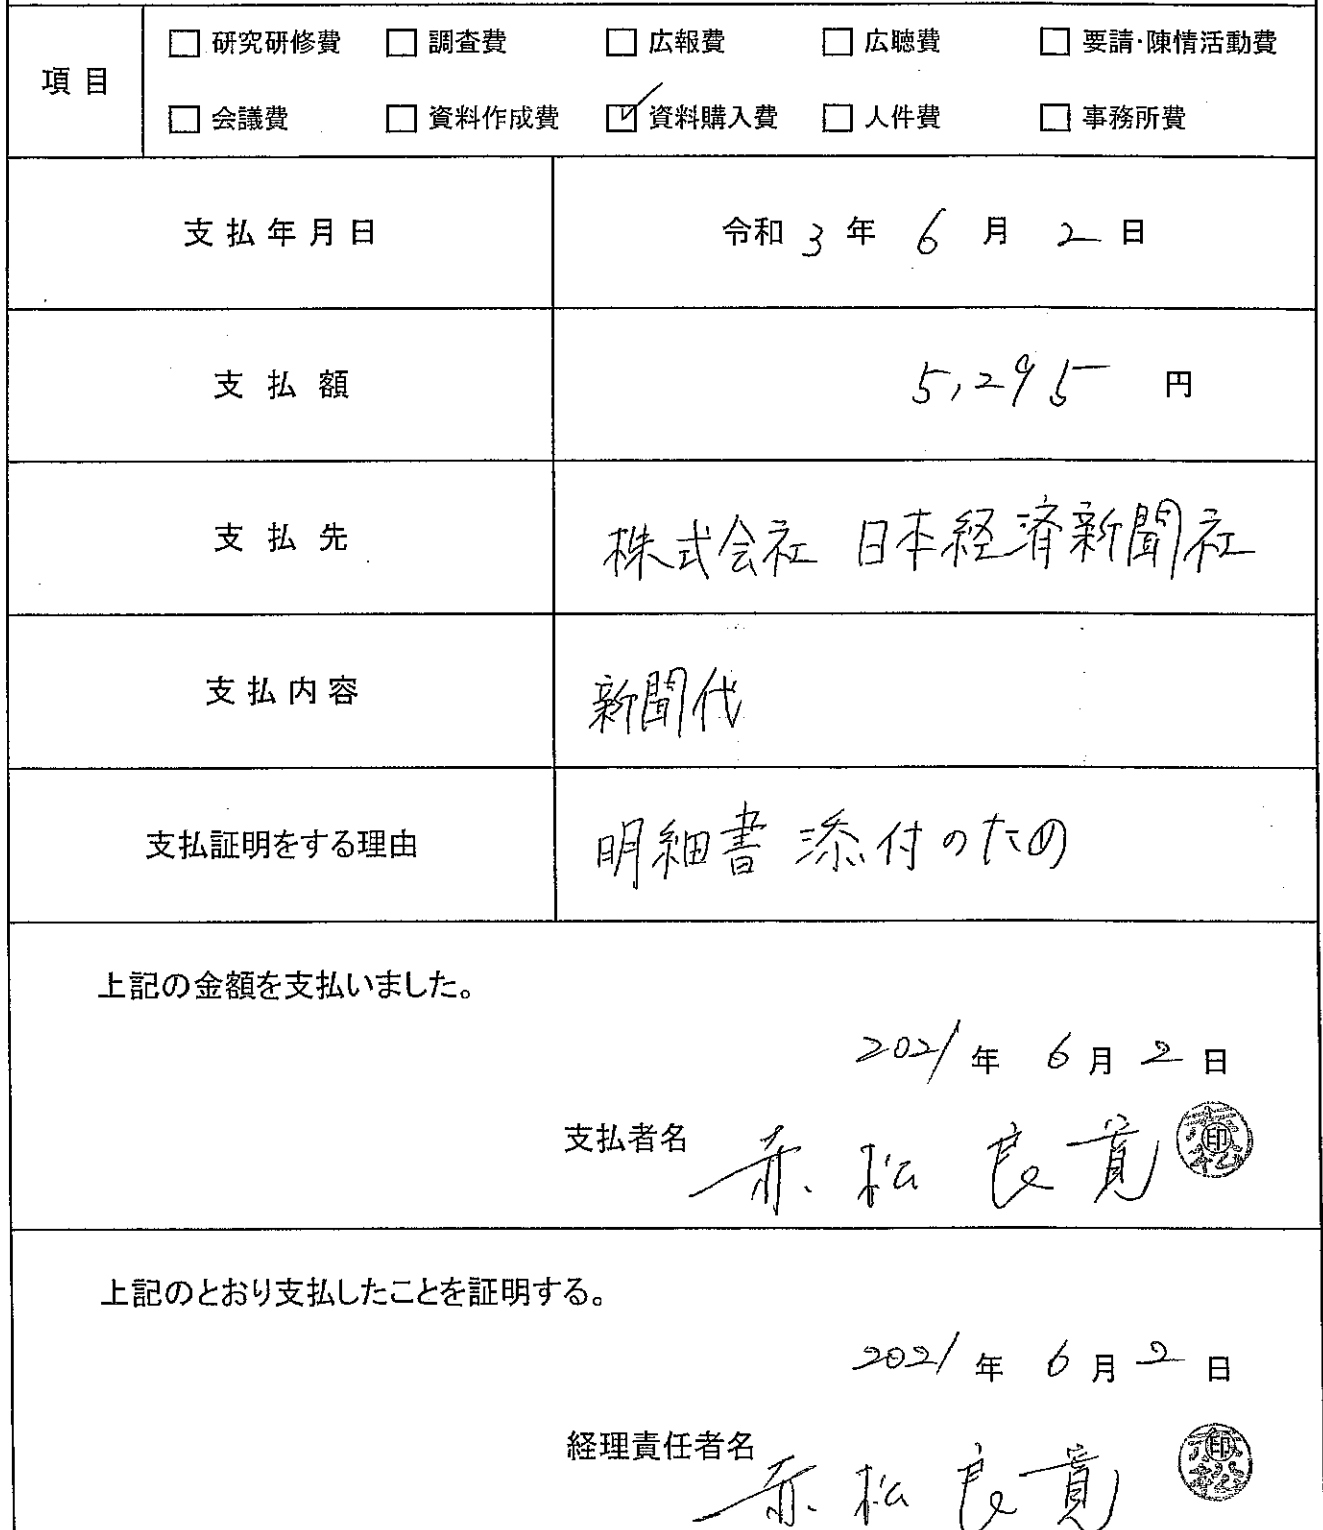 項目
□ 研究研修費 □ 調査費 □ 広報費 □ 広聴費 □ 要請・陳情活動費
□ 会議費 □ 資料作成費 ☑ 資料購入費 □ 人件費 □ 事務所費
支払年月日 令和 3 年 6 月 2 日
支払額 5,295 円
支払先 株式会社 日本経済新聞社
支払内容 新聞代
支払証明をする理由 明細書添付のため
上記の金額を支払いました。
2021 年 6 月 2 日
支払者名 赤松良寛 赤松 印
上記のとおり支払したことを証明する。
2021 年 6 月 2 日
経理責任者名 赤松良寛 赤松 印